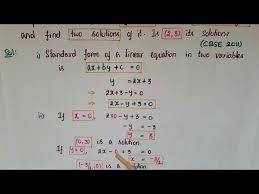 and find two solutions of it. Is (2,3) its solution?
(CBSE 2011)
Sol:
i) Standard form of a linear equation in two variables
is ax+by+c = 0
y = 2x+3
⇒ 2x+3-y = 0
⇒ 2x-y+3 = 0
ii) If x = 0, 2×0-y+3 = 0
-y = -3
y = 3
(0, 3) is a solution.
If y=0, 2x-0+3 = 0
x = -3/2
(-3/2, 0) is a solution